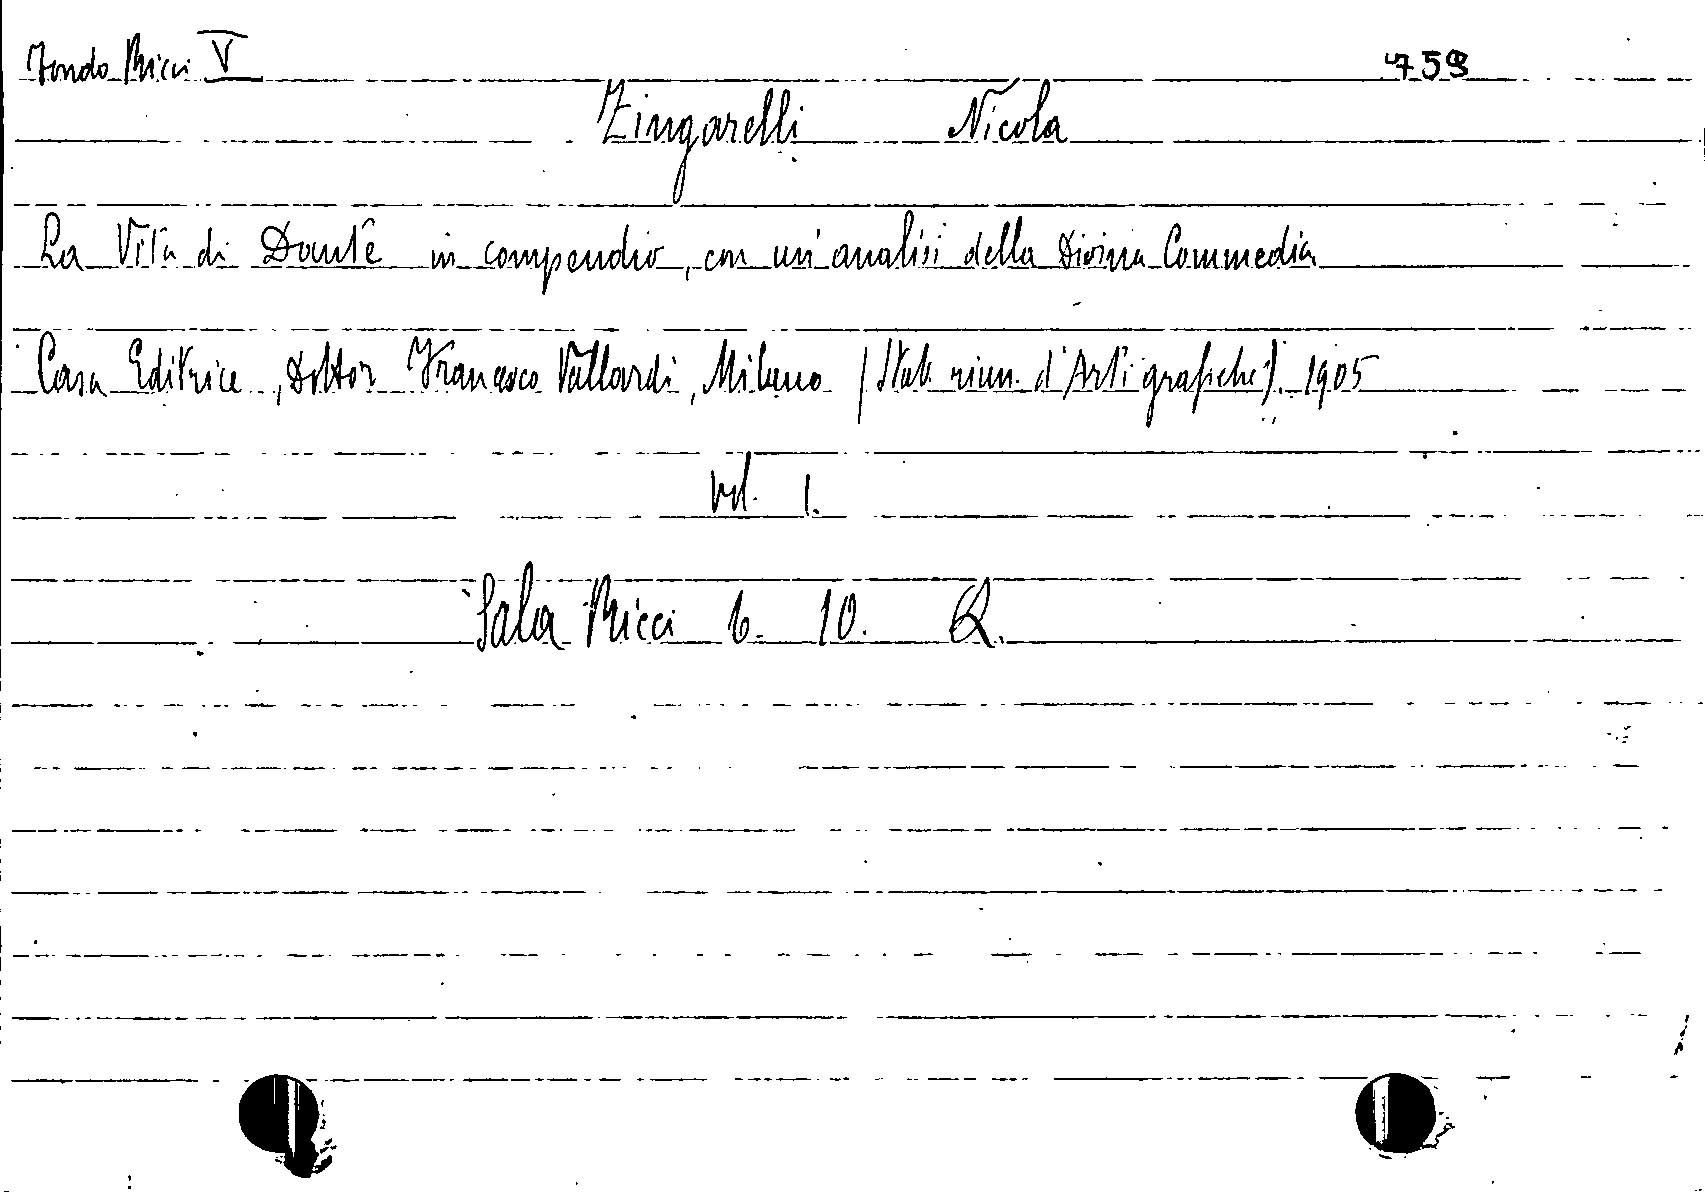 Fondo Ricci V 759
Zingarelli Nicola
La Vita di Dante in compendio, con un'analisi della Divina Commedia
Casa Editrice, Dottor Francesco Vallardi, Milano (Stab. riun. d'Arti grafiche). 1905
vol. 1.
Sala Ricci 6. 10. Q.